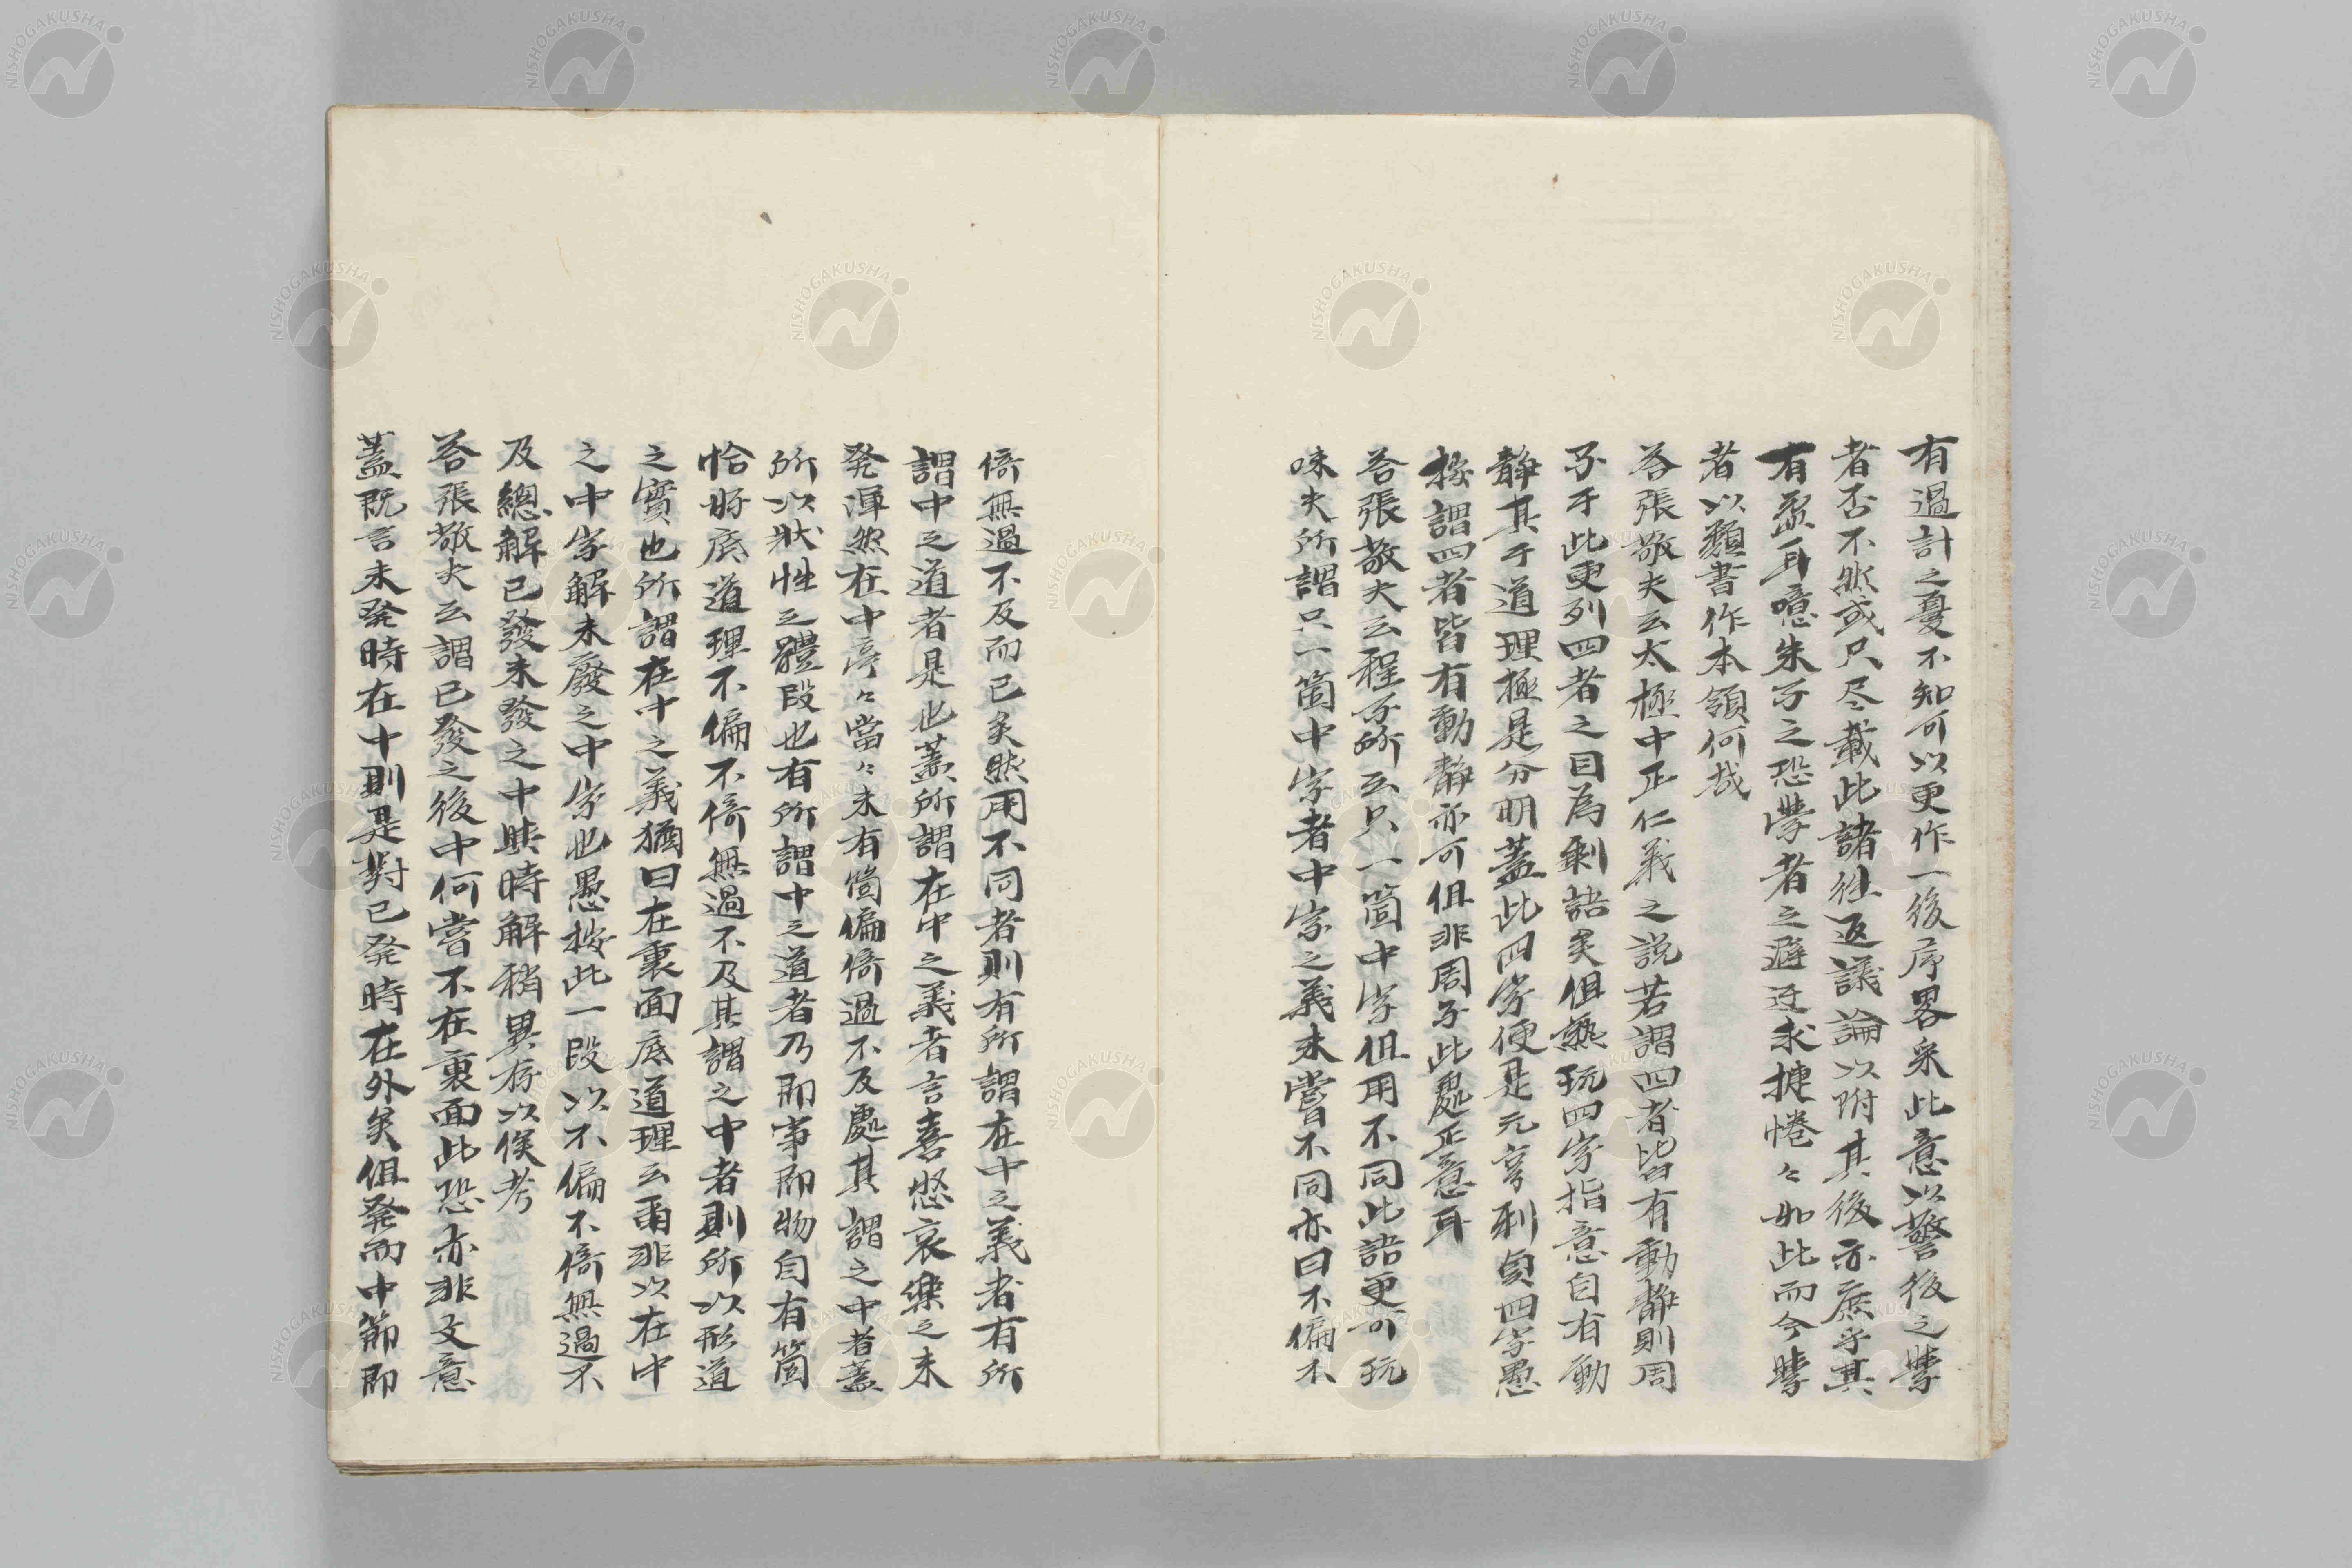 有過計之憂不知可以更作一後序畧采此意以警後之斈
者否不然或只尽載此諸往返議論以附其後亦庶乎其
有益耳噫朱子之恐斈者之避迂求捷惓々如此而今斈
者以類書作本領何哉
答張敬夫云太極中正仁義之説若謂四者皆有動静則周
子于此更列四者之目為剰語矣但熟玩四字指意自有動
静其于道理極是分明蓋此四字便是元亨利貞四字愚
按謂四者皆有動静亦可但非周子此處正意耳
答張敬夫云程子所云只一箇中字但用不同此語更可玩
味夫所謂只一箇中字者中字之義未嘗不同亦曰不偏不
倚無過不及而已矣然用不同者則有所謂在中之義者有所
謂中之道者是也蓋所謂在中之義者言喜怒哀樂之未
発渾然在中亭々當々未有箇偏倚過不及處其謂之中者蓋
所以狀性之體段也有所謂中之道者乃即事即物自有箇
恰好底道理不偏不倚無過不及其謂之中者則所以形道
之實也所謂在中之義猶曰在裏面底道理云爾非以在中
之中字解未廢之中字也愚按此一段以不偏不倚無過不
及總解已發未發之中與時解稍異存以俟考
答張敬夫云謂已發之後中何嘗不在裏面此恐亦非文意
蓋既言未発時在中則是對已発時在外矣但発而中節即